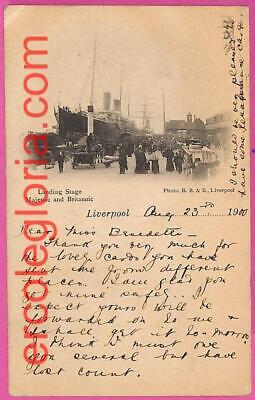 ercolegloria.com
I should be very pleased to
have some
cards.
Landing Stage
Majestic and Britannic
Photo, B. B. & E., Liverpool
Liverpool Aug 23rd 1900
Dear Miss Benedetti
Thank you very much for
the lovely cards you have
sent me from different
places. Am glad you
got mine safely. I
expect yours will be
forwarded on to me &
I shall get it to-morrow
I think I must owe
you several but have
lost count.